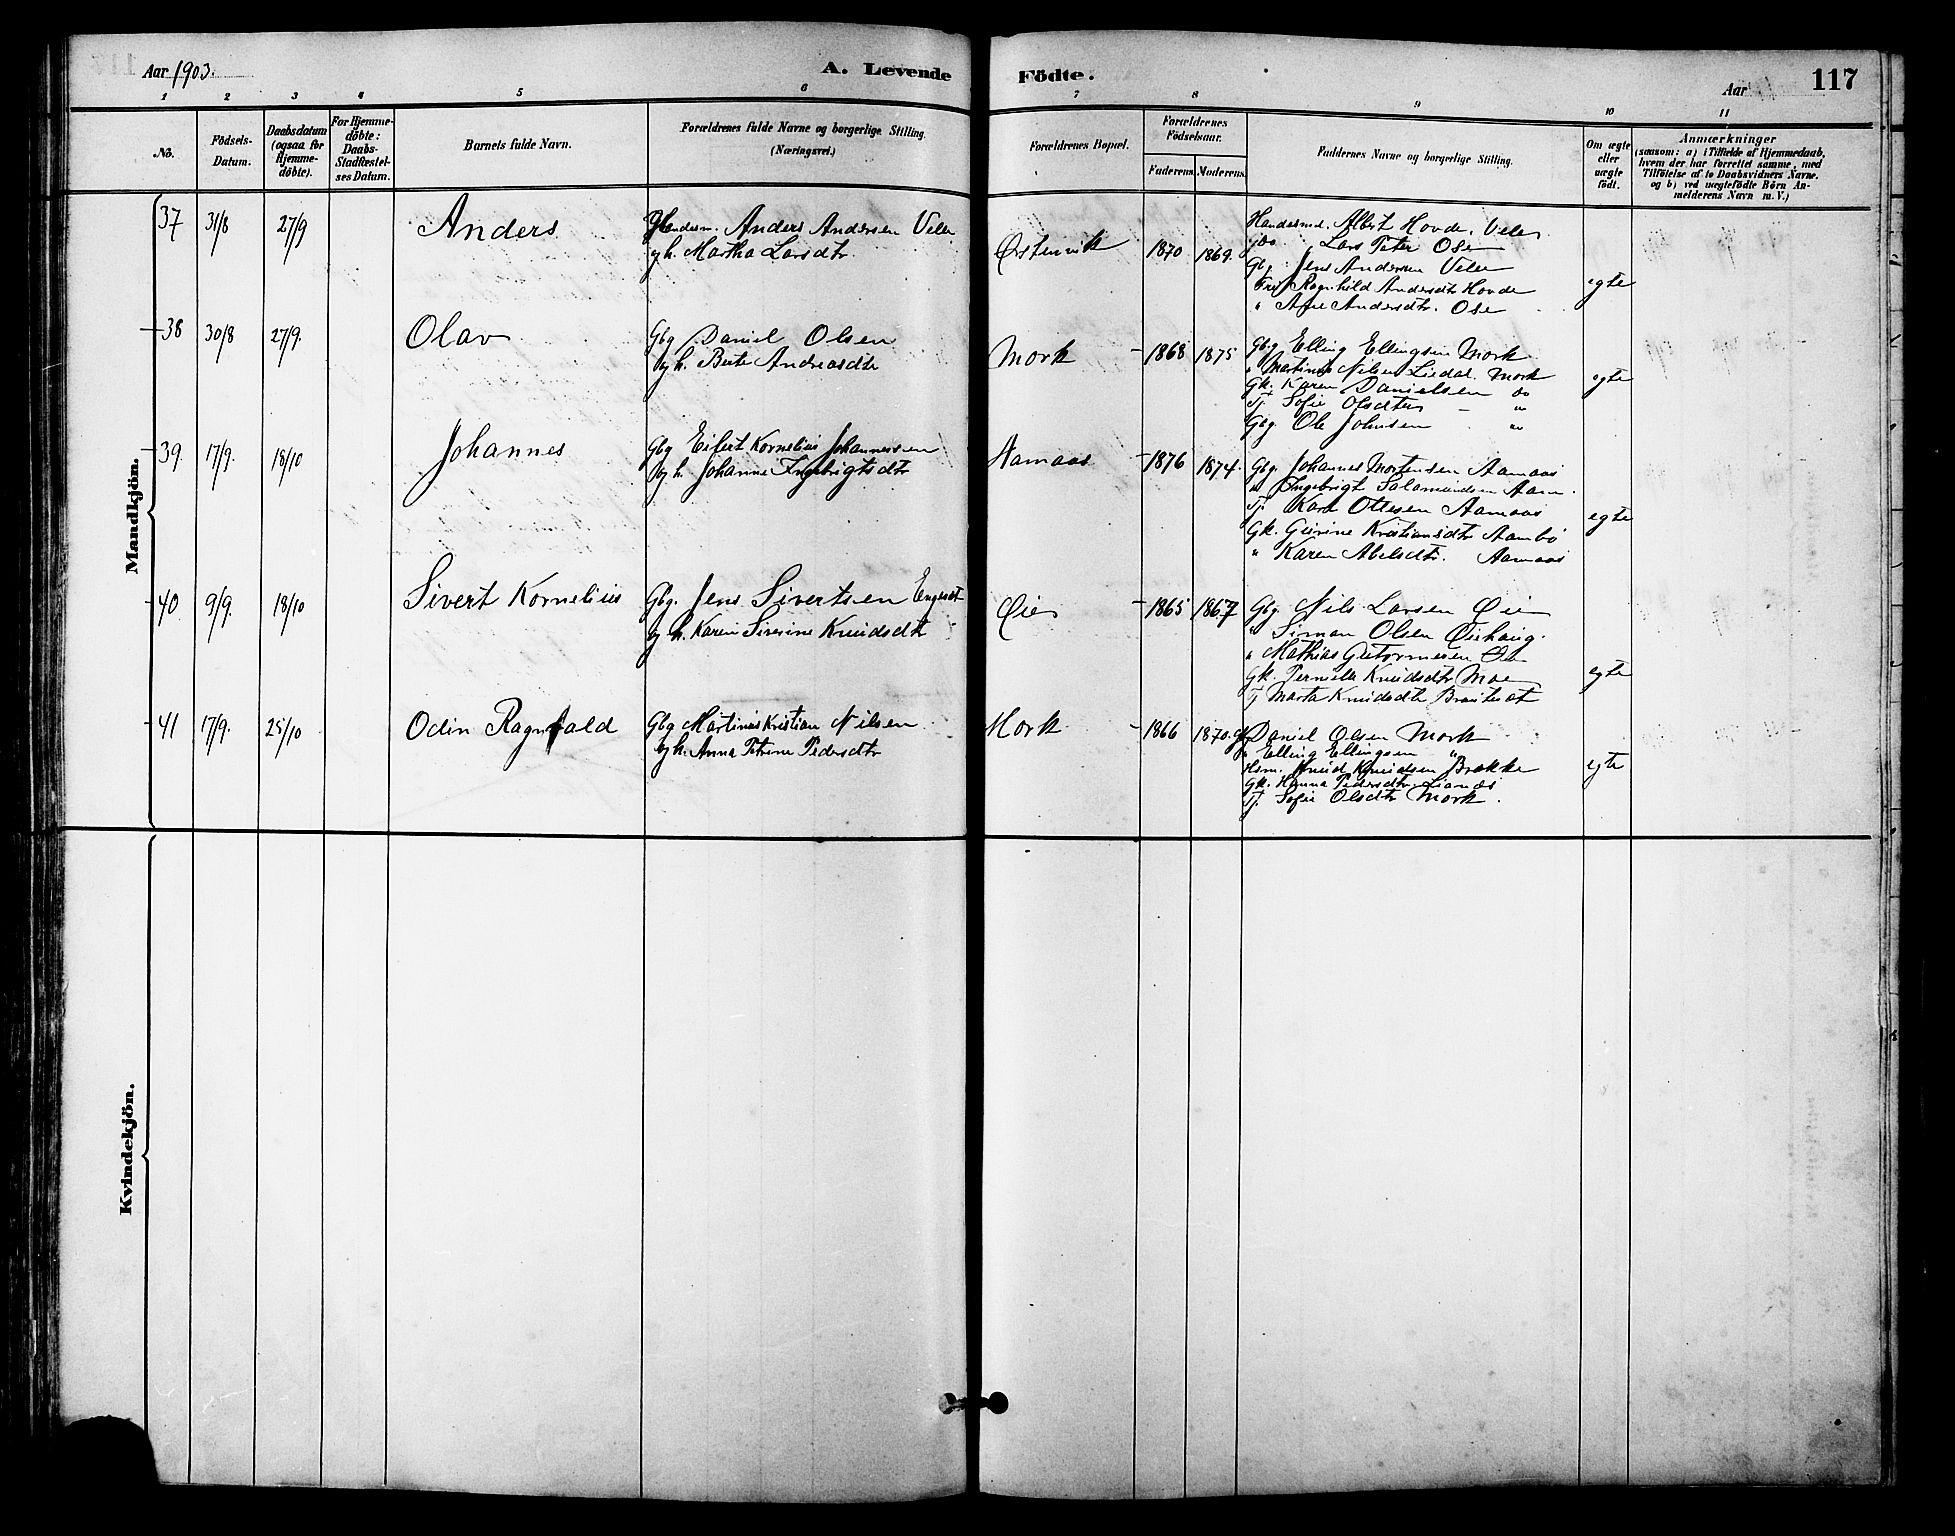 Aar 1903.
A. Levende
Födte.
Aar
117
1 2 3 4 5 6 7 8 9 10 11
No.
Födsels-
Datum.
Daabsdatum
(ogsaa for
Hjemme-
döbte).
For Hjemme-
döbte:
Daabs-
Stadfæstel-
ses Datum.
Barnets fulde Navn.
Forældrenes fulde Navne og borgerlige Stilling.
(Næringsvei.)
Forældrenes Bopæl.
Forældrenes
Födselsaar.
Faderens. Moderens.
Faddernes Navne og borgerlige Stilling.
Om ægte
eller
uægte
födt.
Anmærkninger
(saasom: a) i Tilfælde af Hjemmedaab,
hvem der har forrettet samme, med
Tilföielse af to Daabsvidners Navne.
og b) ved uægtefödte Börn An-
melderens Navn m. V.)
Mandkjön.
37 31/8 27/9 Anders
Anders Andersen Velle
og h. Martha Larsdtr.
Ørstenvik 1870 1869.
Albert Hovde, Velle
do Lars Peter Ose
Gbg. Jens Andersen Velle
Ragnhild Andersdtr Hovde
" Andersdtr. Ose
egte
38 30/8 27/9. Olav
Gbg Daniel Olsen
og h. Berte Andreasdtr
Mork 1868 1875
Gbg Elling Ellingsen Mork
" Martinus Nilsen Mork
Gk. Karen Danielsen do
Tj. Sofie Olsdtr - "
Gbg. Ole Johnsen "
egte
39. 17/9. 18/10 Johannes
Gbg Eilert Kornelius Johannessen
og h. Johanne Ingebrigtsdtr
Aamaas 1876 1874.
Gbg. Johannes Mortensen Aamaas
" Ingebrigt Salamonsen Aam.
Tj. Karl Ottesen Aamaas
Gk. Kristiansdtr Aambø
" Karen Abelsdtr. Aamaas
egte
40. 9/9. 18/10 Sivert Kornelius
Gbg. Jens Sivertsen Engeset
og h. Karen Siverine Knudsdtr
Øie 1865 1867
Gbg. Nils Larsen Øie
" Simon Olsen Øiehaug.
" Mathias Guttormsen
Gk. Pernille Knudsdtr Moe
Tj Marta Knudsdtr
egte
41 17/9. 25/10 Odin Ragnvald
Gbg Martinus Kristian Nilsen
og h. Anna Petrine Pedersdtr
Mork 1866 1870.
Gbg Daniel Olsen Mork
" Elling Ellingsen "
Hsm. Knud Knudsen Brække
Gk. Hanna Pedersdtr.
Tj. Sofie Olsdtr Mork.
egte
Kvindekjön.